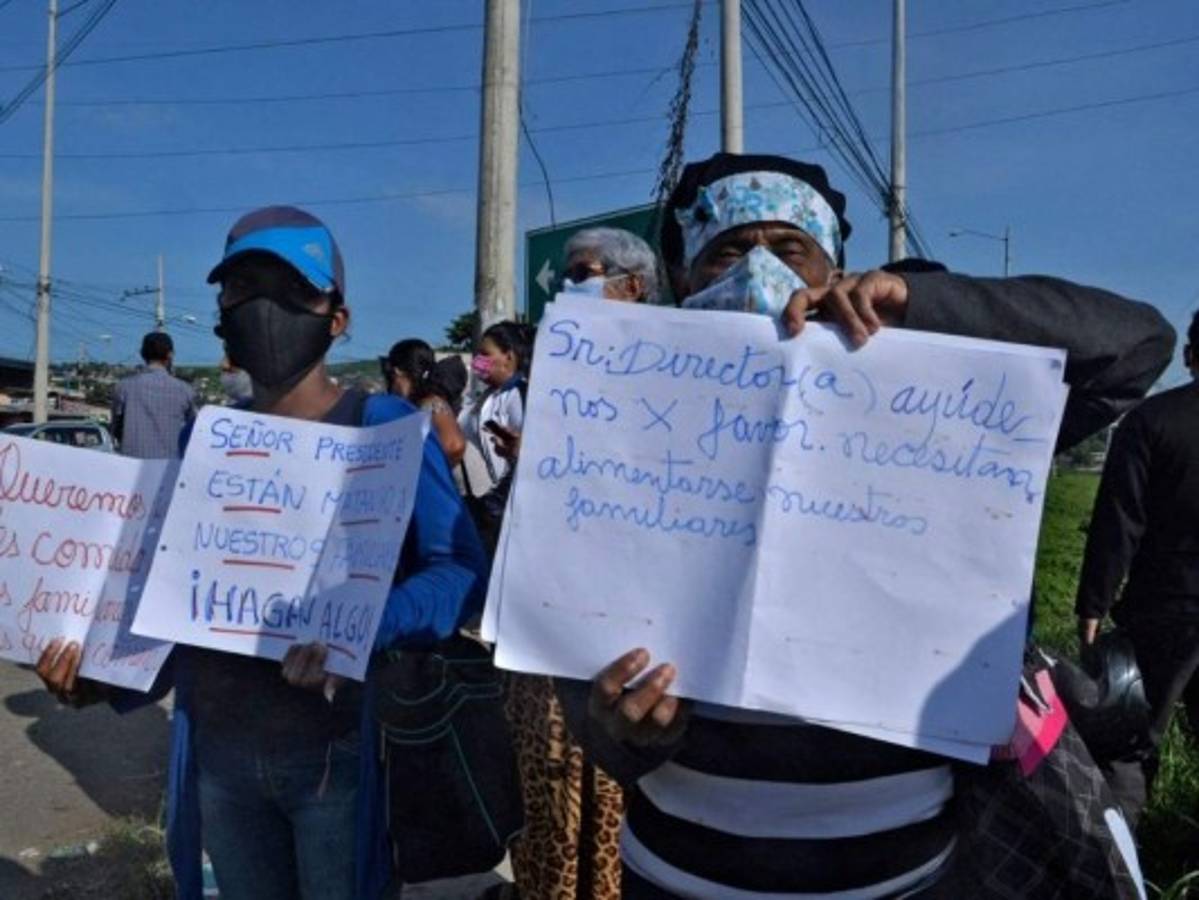 Queremos
comida
SEÑOR PRESIDENTE
ESTÁN MATANDO A
NUESTROS FAMILIARES
¡HAGAN ALGO!
Sr: Director(a) ayúde-
nos X favor. necesitan
alimentarse nuestros
familiares